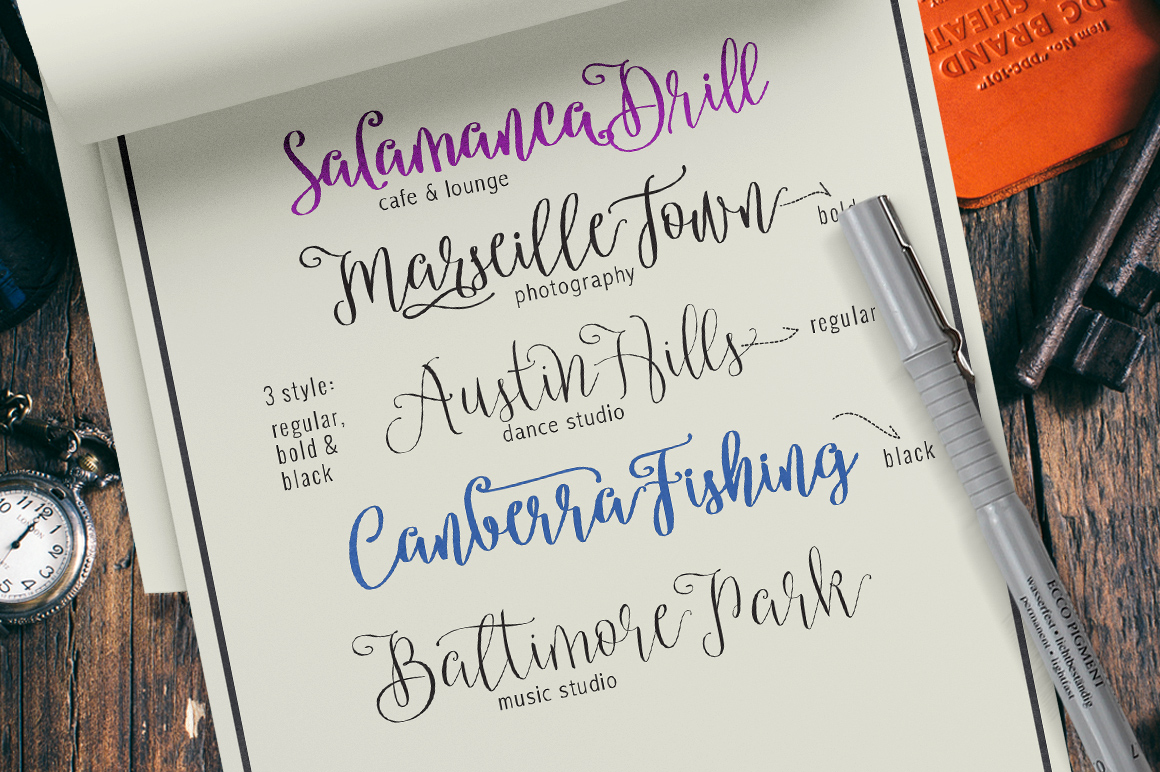 Salamanca Drill
cafe & lounge
Marseille Town
photography
Austin Hills
regular
dance studio
3 style:
regular,
bold &
black
Canberra Fishing
black
Baltimore Park
music studio
ECCO PIGMENT
wasserfest • lichtbeständig
permanent • lightfast
from No. "DDC-101"
DDC BRAND
LONDON